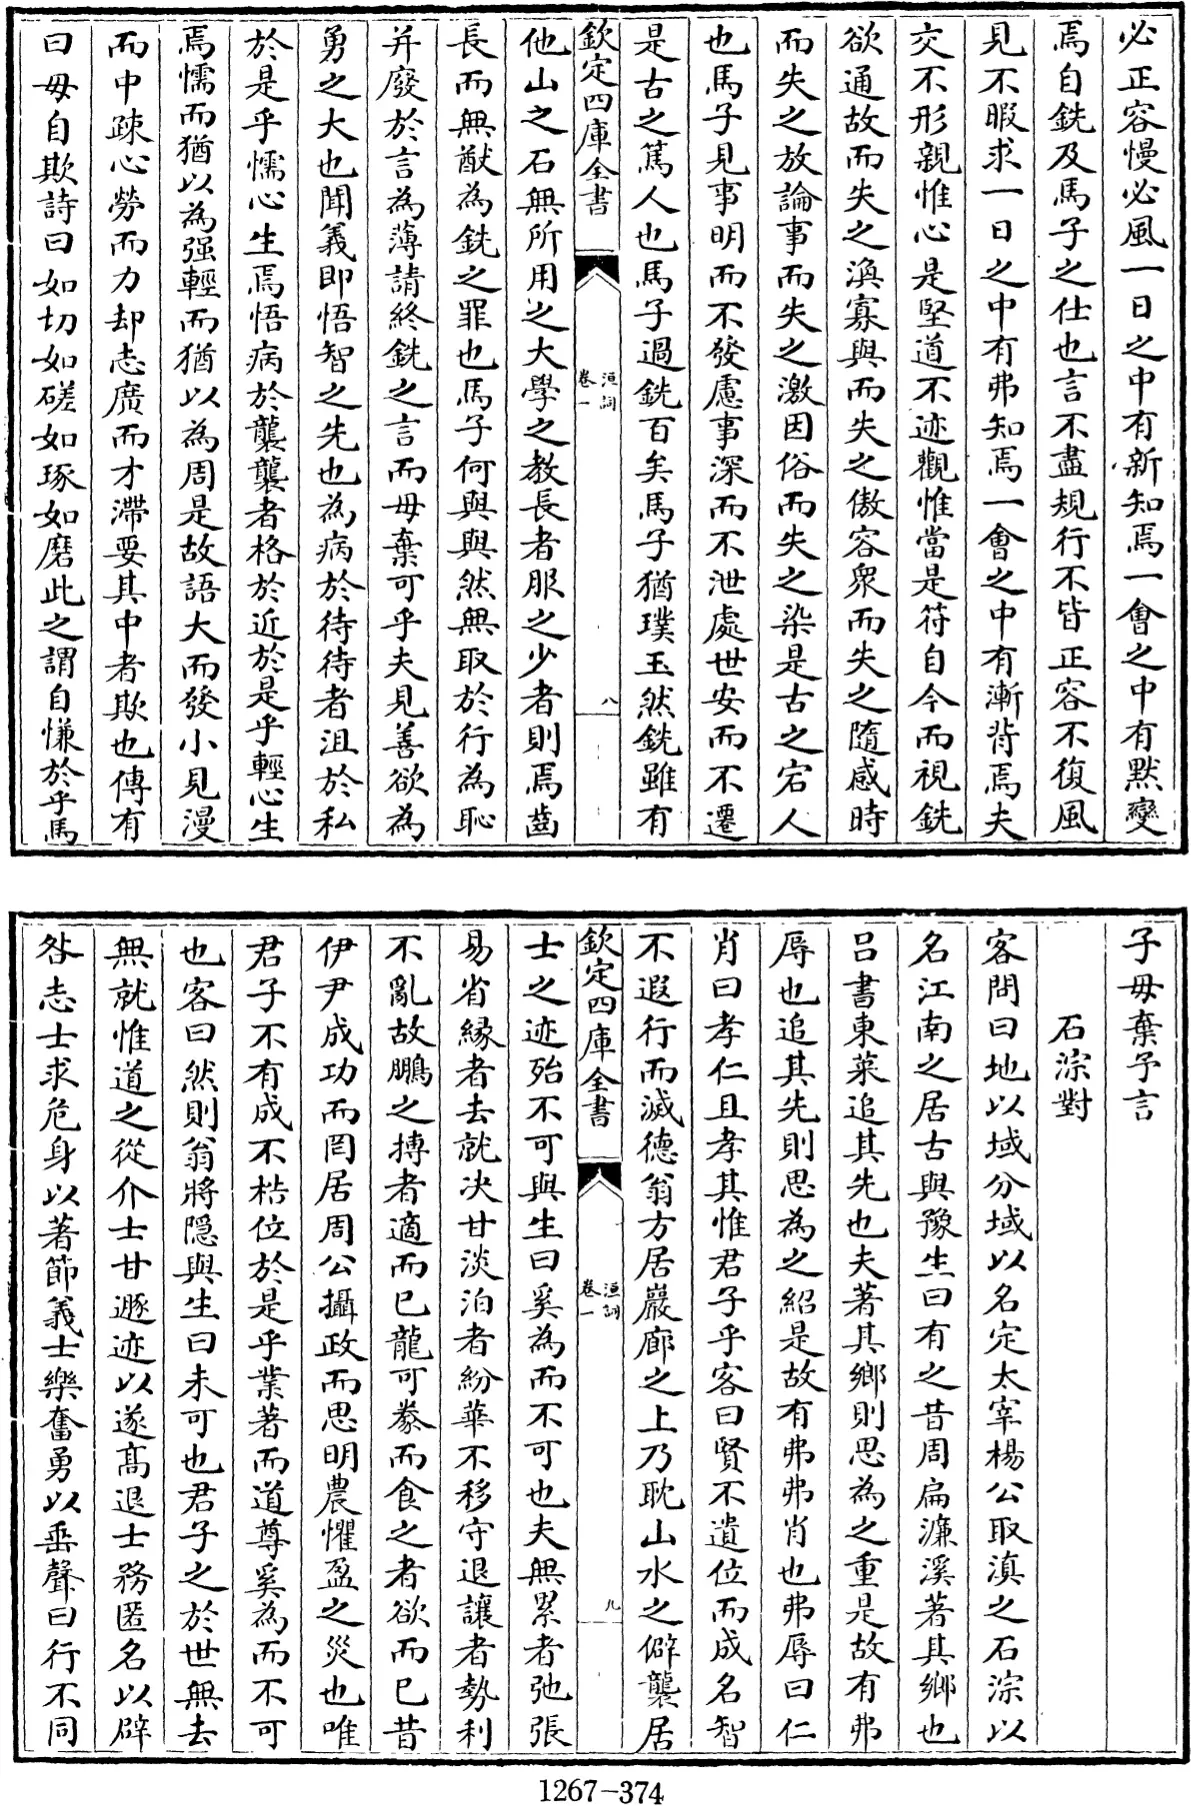 必正容慢必風一日之中有新知焉一會之中有默變
焉自銑及馬子之仕也言不盡規行不皆正容不復風
見不暇求一日之中有弗知焉一會之中有漸背焉夫
交不形親惟心是堅道不迹觀惟當是符自今而視銑
欲通故而失之渙寡與而失之傲容衆而失之隨感時
而失之放論事而失之激因俗而失之染是古之宕人
也馬子見事明而不發慮事深而不泄處世安而不遷
是古之篤人也馬子過銑百矣馬子猶璞玉然銑雖有
欽定四庫全書
洹詞
卷一
八
他山之石無所用之大學之教長者服之少者則焉齒
長而無猷為銑之罪也馬子何與與然無取於行為恥
并廢於言為薄請終銑之言而毋棄可乎夫見善欲為
勇之大也聞義即悟智之先也為病於待待者沮於私
於是乎懦心生焉悟病於襲襲者格於近於是乎輕心生
焉懦而猶以為强輕而猶以為周是故語大而發小見漫
而中疎心勞而力却志廣而才滯要其中者欺也傳有
曰毋自欺詩曰如切如磋如琢如磨此之謂自慊於乎馬
子毋棄予言
石淙對
客問曰地以域分域以名定太宰楊公取滇之石淙以
名江南之居古與豫生曰有之昔周扁濂溪著其鄉也
吕書東萊追其先也夫著其鄉則思為之重是故有弗
辱也追其先則思為之紹是故有弗弗肖也弗辱曰仁
肖曰孝仁且孝其惟君子乎客曰賢不遺位而成名智
不遐行而滅德翁方居巖廊之上乃耽山水之僻襲居
欽定四庫全書
洹詞
卷一
九
士之迹殆不可與生曰奚為而不可也夫無累者弛張
易省緣者去就决甘淡泊者紛華不移守退讓者勢利
不亂故鵬之摶者適而已龍可豢而食之者欲而已昔
伊尹成功而罔居周公攝政而思明農懼盈之災也唯
君子不有成不梏位於是乎業著而道尊奚為而不可
也客曰然則翁將隱與生曰未可也君子之於世無去
無就惟道之從介士甘遯迹以遂髙退士務匿名以辟
咎志士求危身以著節義士樂奮勇以垂聲曰行不同
1267-374